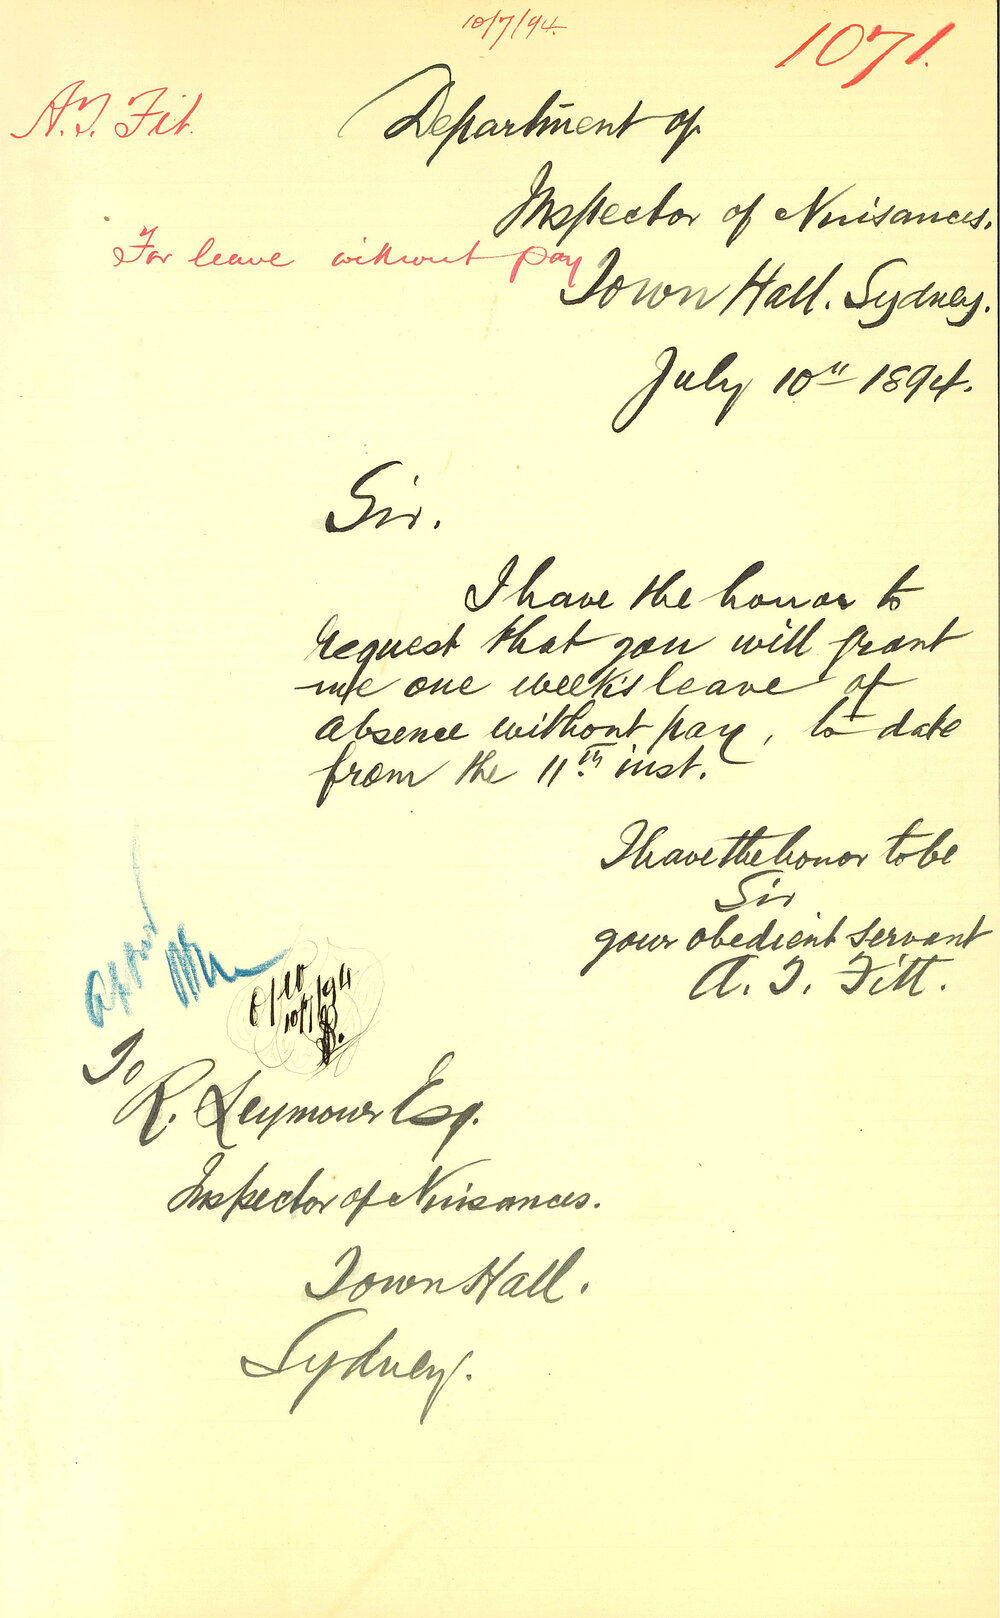 10/7/94.
1071.
A.T. Fit.
Department of
Inspector of Nuisances.
For leave without pay
Town Hall. Sydney.
July 10th 1894.
Sir.
I have the honor to
request that you will grant
me one week's leave of
absence without pay, to date
from the 11th inst.
I have the honor to be
Sir
your obedient servant
A. T. Fitt.
10/7/94
To
R. Seymour Esq.
Inspector of Nuisances.
Town Hall.
Sydney.